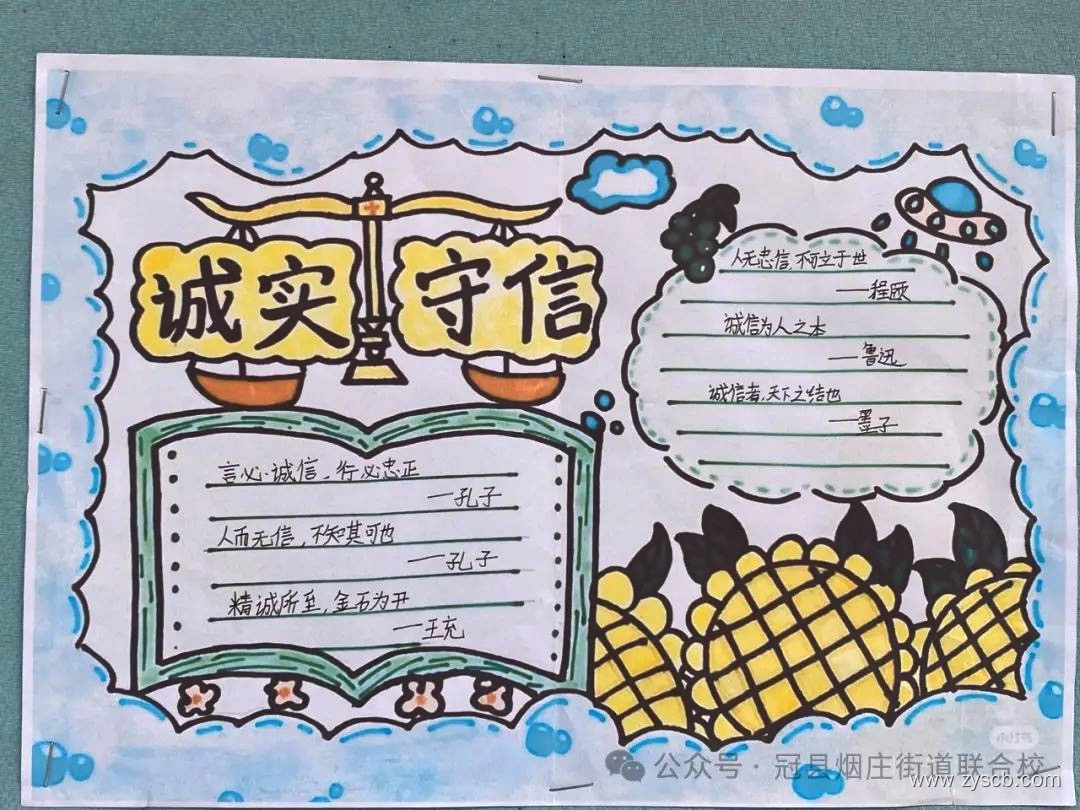 诚实守信
言必诚信,行必忠正
——孔子
人而无信,不知其可也
——孔子
精诚所至,金石为开
——王充
人无忠信,不可立于世
——程颐
诚信为人之本
——鲁迅
诚信者,天下之结也
——墨子
公众号·冠县烟庄街道联合校
www.zyscb.com